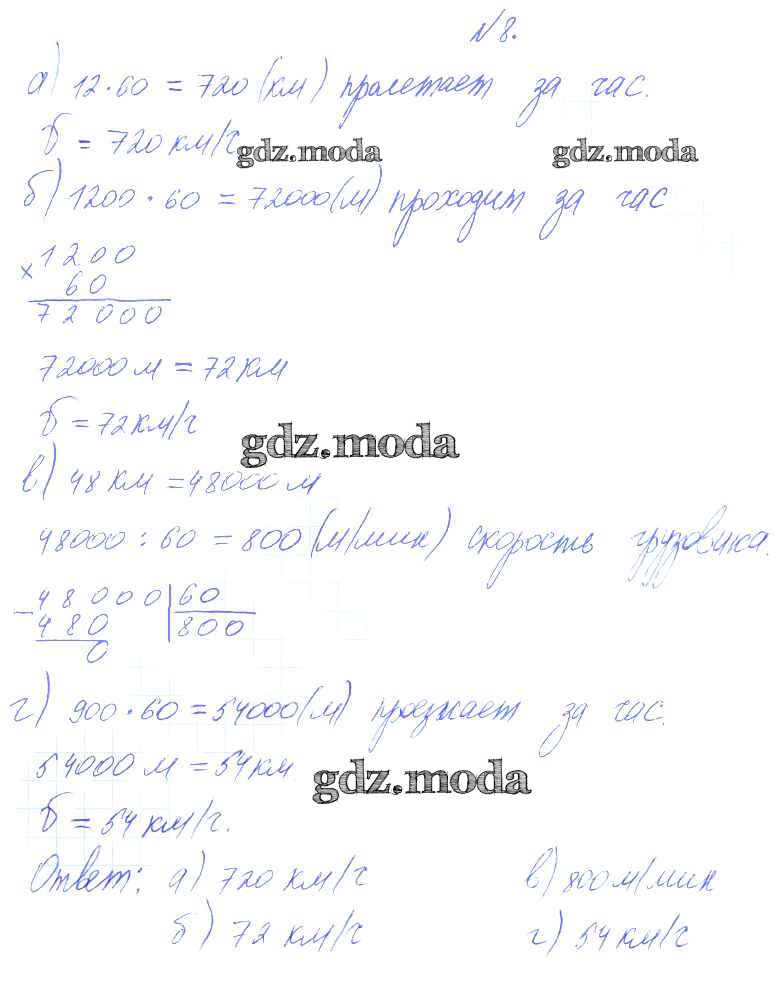 №8.
а) 12·60 = 720 (км) пролетает за час.
б = 720 км/ч
gdz.moda gdz.moda
б) 1200·60 = 72000 (м) проходит за час
×1200
60
72000
72000 м = 72 км
б = 72 км/ч
gdz.moda
в) 48 км = 48000 м
48000 : 60 = 800 (м/мин) скорость грузовика.
−48000 | 60
480 | 800
0
г) 900·60 = 54000 (м) проезжает за час.
54000 м = 54 км.
gdz.moda
б = 54 км/ч.
Ответ: а) 720 км/ч в) 800 м/мин
б) 72 км/ч г) 54 км/ч